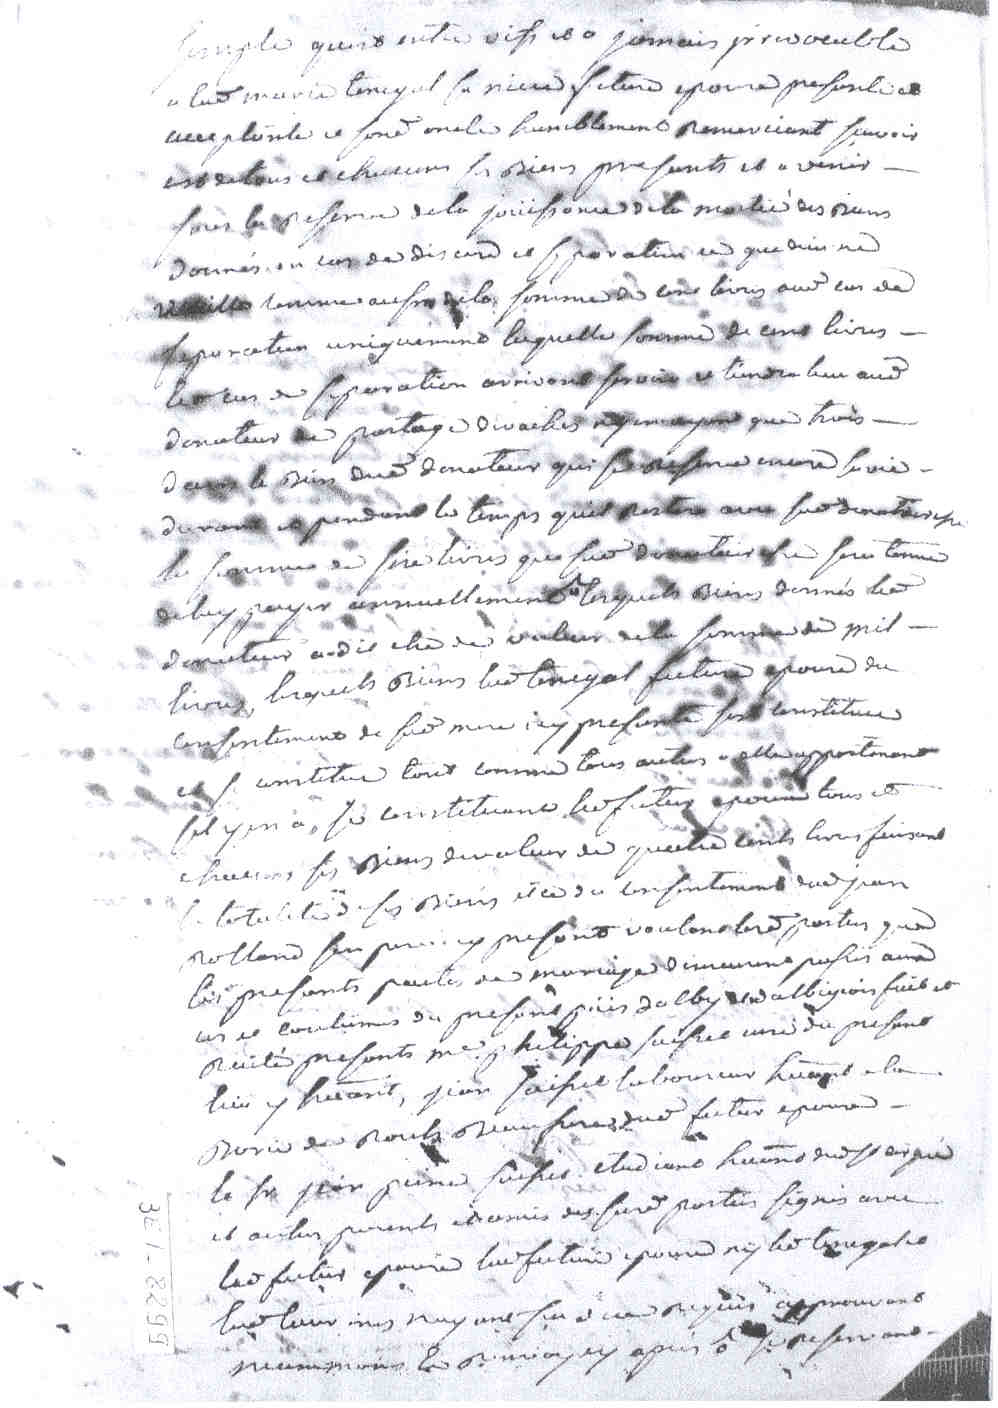 simple quitte entre vifs et a jamais irrevocable
a lad marie tenegal sa niece future epouse presente et
acceptante et sond oncle humblement remerciant scavoir
est de tous et chacuns ses biens presents et a venir —
sous la reserve de la joüissance de la moitié des biens
donnés en cas de discord et separation ce que dieu ne
veuille comme aussy de la somme de cent livres aud cas de
separation uniquement laquelle somme de cent livres —
led cas de separation arrivant tiendra lieu aud
donateur de partage de n'y en ayant que trois —
dans le bien dud donateur qui se reserve encore sa vie —
durant et pendant le temps quil restera avec sad donataire
la somme de seize livres que sad donataire sera tenue
de luy payer annuellement lesquels biens donnés led
donateur a dit etre de valeur de la somme de mil —
livres, lesquels biens lad tenegal future epouse du
consentement de sad mere icy presente sest constituée
et se constitue tout comme tous autres a elle appartenant
sil y en a, se constituant led futur epoux tous et
chacuns ses biens de valeur de quatre cents livres faisant
la totalité de ses biens et ce du consentement dud jean
rolland son pere icy present voulant lesd parties que
les presents pactes de mariage demeurent passés aux
us et coutumes du present païs dalby et dalbigeois fait et
recité presents me philippe saisset curé du present
lieu y habitant, jean saisset laboureur habitant a la
borie de beaufrere dud futur epoux —
le sr jean pierre saisset etudiant habitant dud
et autres parents et amis desd parties signés avec
led futur epoux lad future epouse ny led tenegal et
lad leur mere n'ayant sceu de ce requis approuvant
neanmoins le renvoy cy apres se reservant —
3E 1-8299